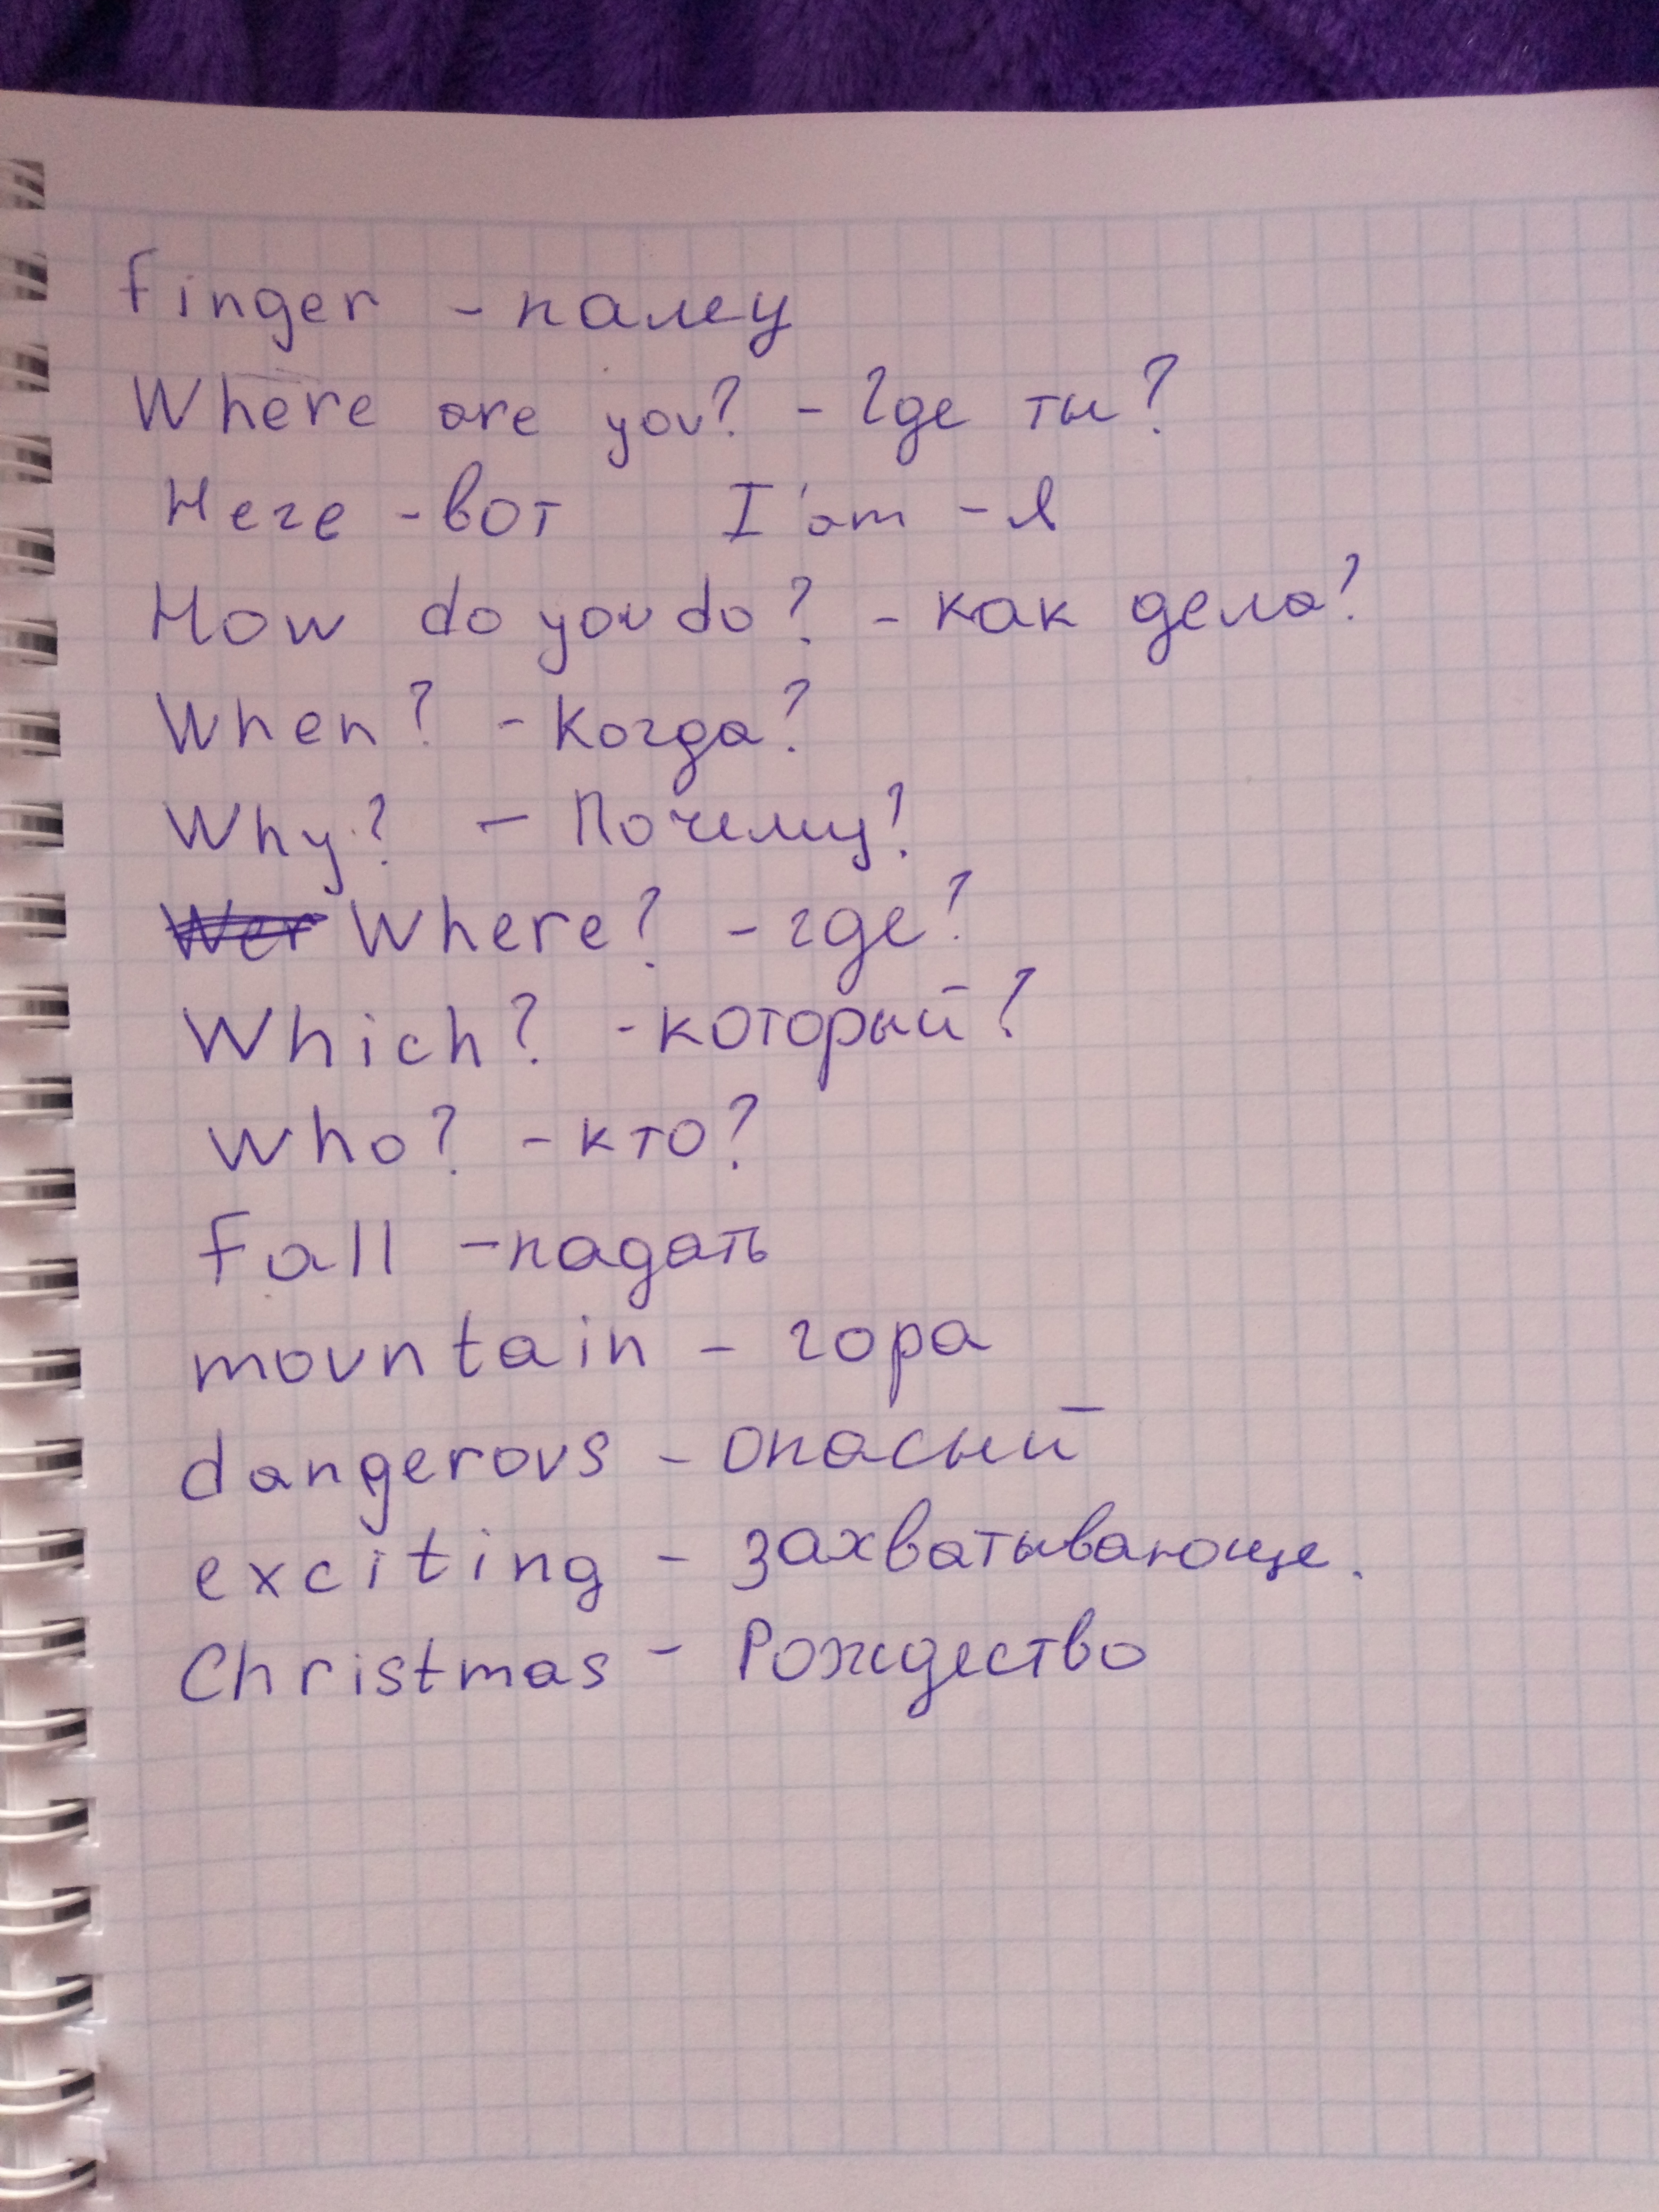 Finger - палец
Where are you? - Где ты?
Here - вот I'am - я
How do you do? - как дела?
When? - Когда?
Why? - Почему?
Wer Where? - где?
Which? - который?
Who? - кто?
Fall - падать
mountain - гора
dangerous - опасый
exciting - захватывающе.
Christmas - Рождество